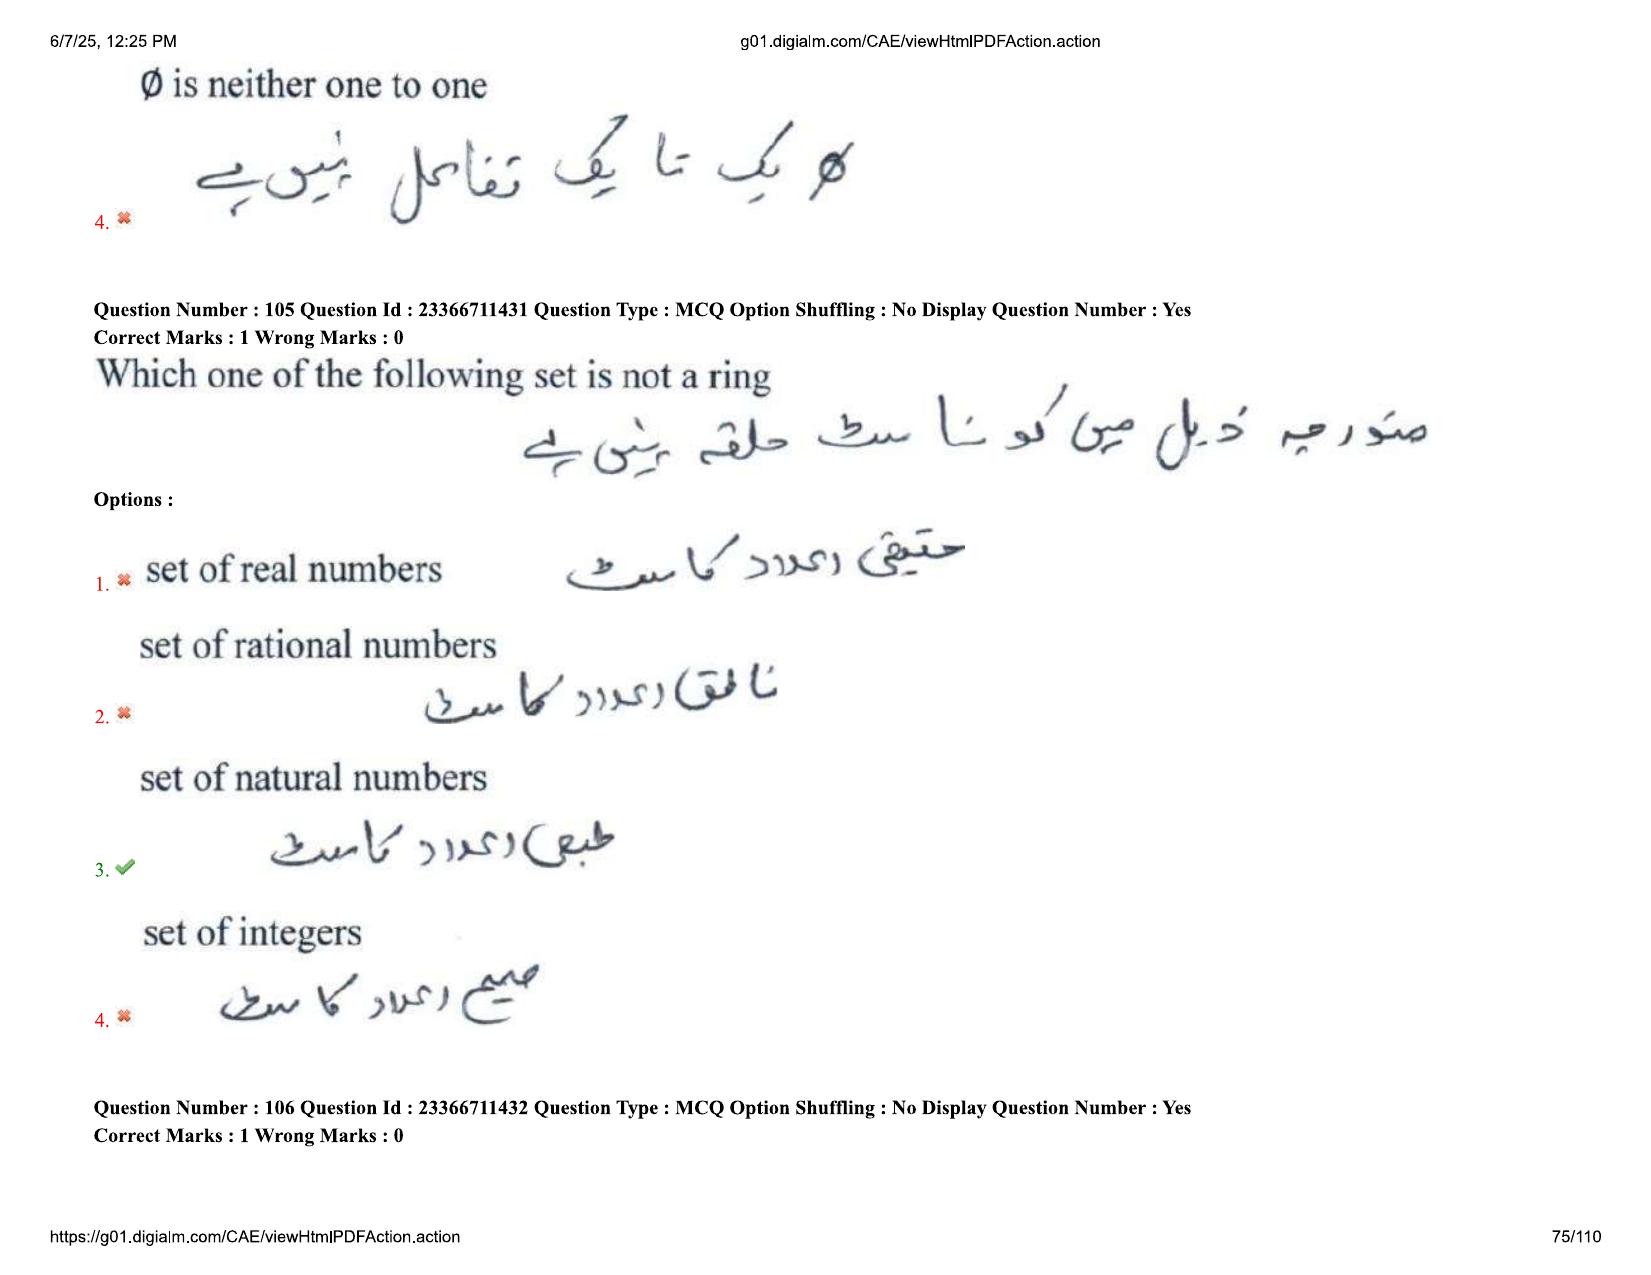 6/7/25, 12:25 PM
g01.digialm.com/CAE/viewHtmlPDFAction.action
Ø is neither one to one
Ø یک تا یک تفاعل نہیں ہے
4.
Question Number : 105 Question Id : 23366711431 Question Type : MCQ Option Shuffling : No Display Question Number : Yes
Correct Marks : 1 Wrong Marks : 0
Which one of the following set is not a ring
ذیل میں کونسا سٹ حلقہ نہیں ہے
Options :
1. set of real numbers حقیقی اعداد کا سٹ
set of rational numbers
ناطق اعداد کا سٹ
2.
set of natural numbers
طبعی اعداد کا سٹ
3.
set of integers
صحیح اعداد کا سٹ
4.
Question Number : 106 Question Id : 23366711432 Question Type : MCQ Option Shuffling : No Display Question Number : Yes
Correct Marks : 1 Wrong Marks : 0
https://g01.digialm.com/CAE/viewHtmlPDFAction.action
75/110